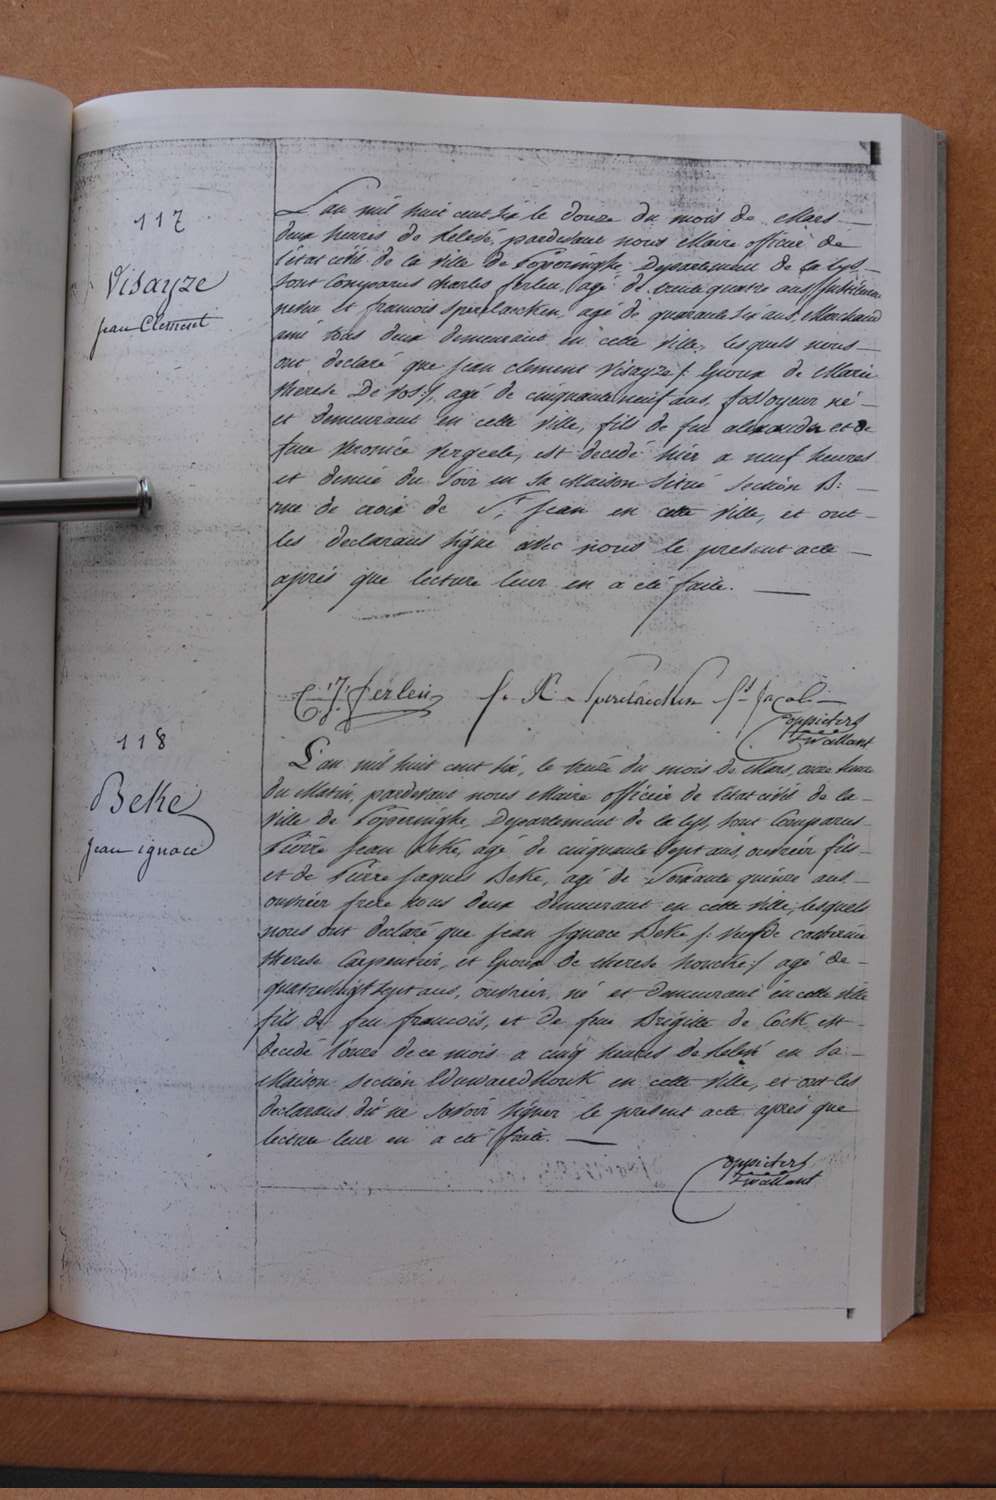 117
Visayze
jean Clement
L'an mil huit cent six le douze du mois de Mars
deux heures de relevé, pardevant nous Maire officier de
l'état civil de la ville de Poperinghe, Departement de la Lys,
sont comparus charles ferleu, agé de trente quatre ans,
neveu et francois Sperelaecken, agé de quarante six ans, Marchand
ami tous deux demeurant en cette ville, lesquels nous
ont declaré que jean clement Visayze /: Epoux de Marie
therese De Vos :/ agé de cinquante neuf ans, fossoyeur né
et demeurant en cette ville, fils de feu alexander et de
feue veronice vergeele, est decedé hier a neuf heures
et demie du soir en sa Maison situé section B:
rue de croix de St jean en cette ville, et ont
les declarans signé avec nous le present acte
après que lecture leur en a été faite.
C. J. ferleu f. A. Sperelaecken
Coppieters
t'wallant
118
Beke
jean ignace
L'an mil huit cent six, le treize du mois de Mars, onze heure
du Matin, pardevant nous Maire officier de l'état civil de la
ville de Poperinghe, Departement de la Lys, sont comparus
Pierre jean Beke, agé de cinquante sept ans, ouvrier fils
et de Pierre jaques Beke, agé de soixante quinze ans
ouvrier frere tous deux demeurant en cette ville, lesquels
nous ont declaré que jean ignace Beke /: veuf de catherine
therese Carpentier, et Epoux de therese houcke :/ agé de
quatrevingt sept ans, ouvrier, né et demeurant en cette ville
fils de feu francois, et de feue Brigitte de Cock est
decedé l'onze de ce mois a cinq heures de relevé en sa
Maison section en cette ville, et ont les
declarans dit ne savoir signer le present acte après que
lecture leur en a été faite.
Coppieters
t'wallant